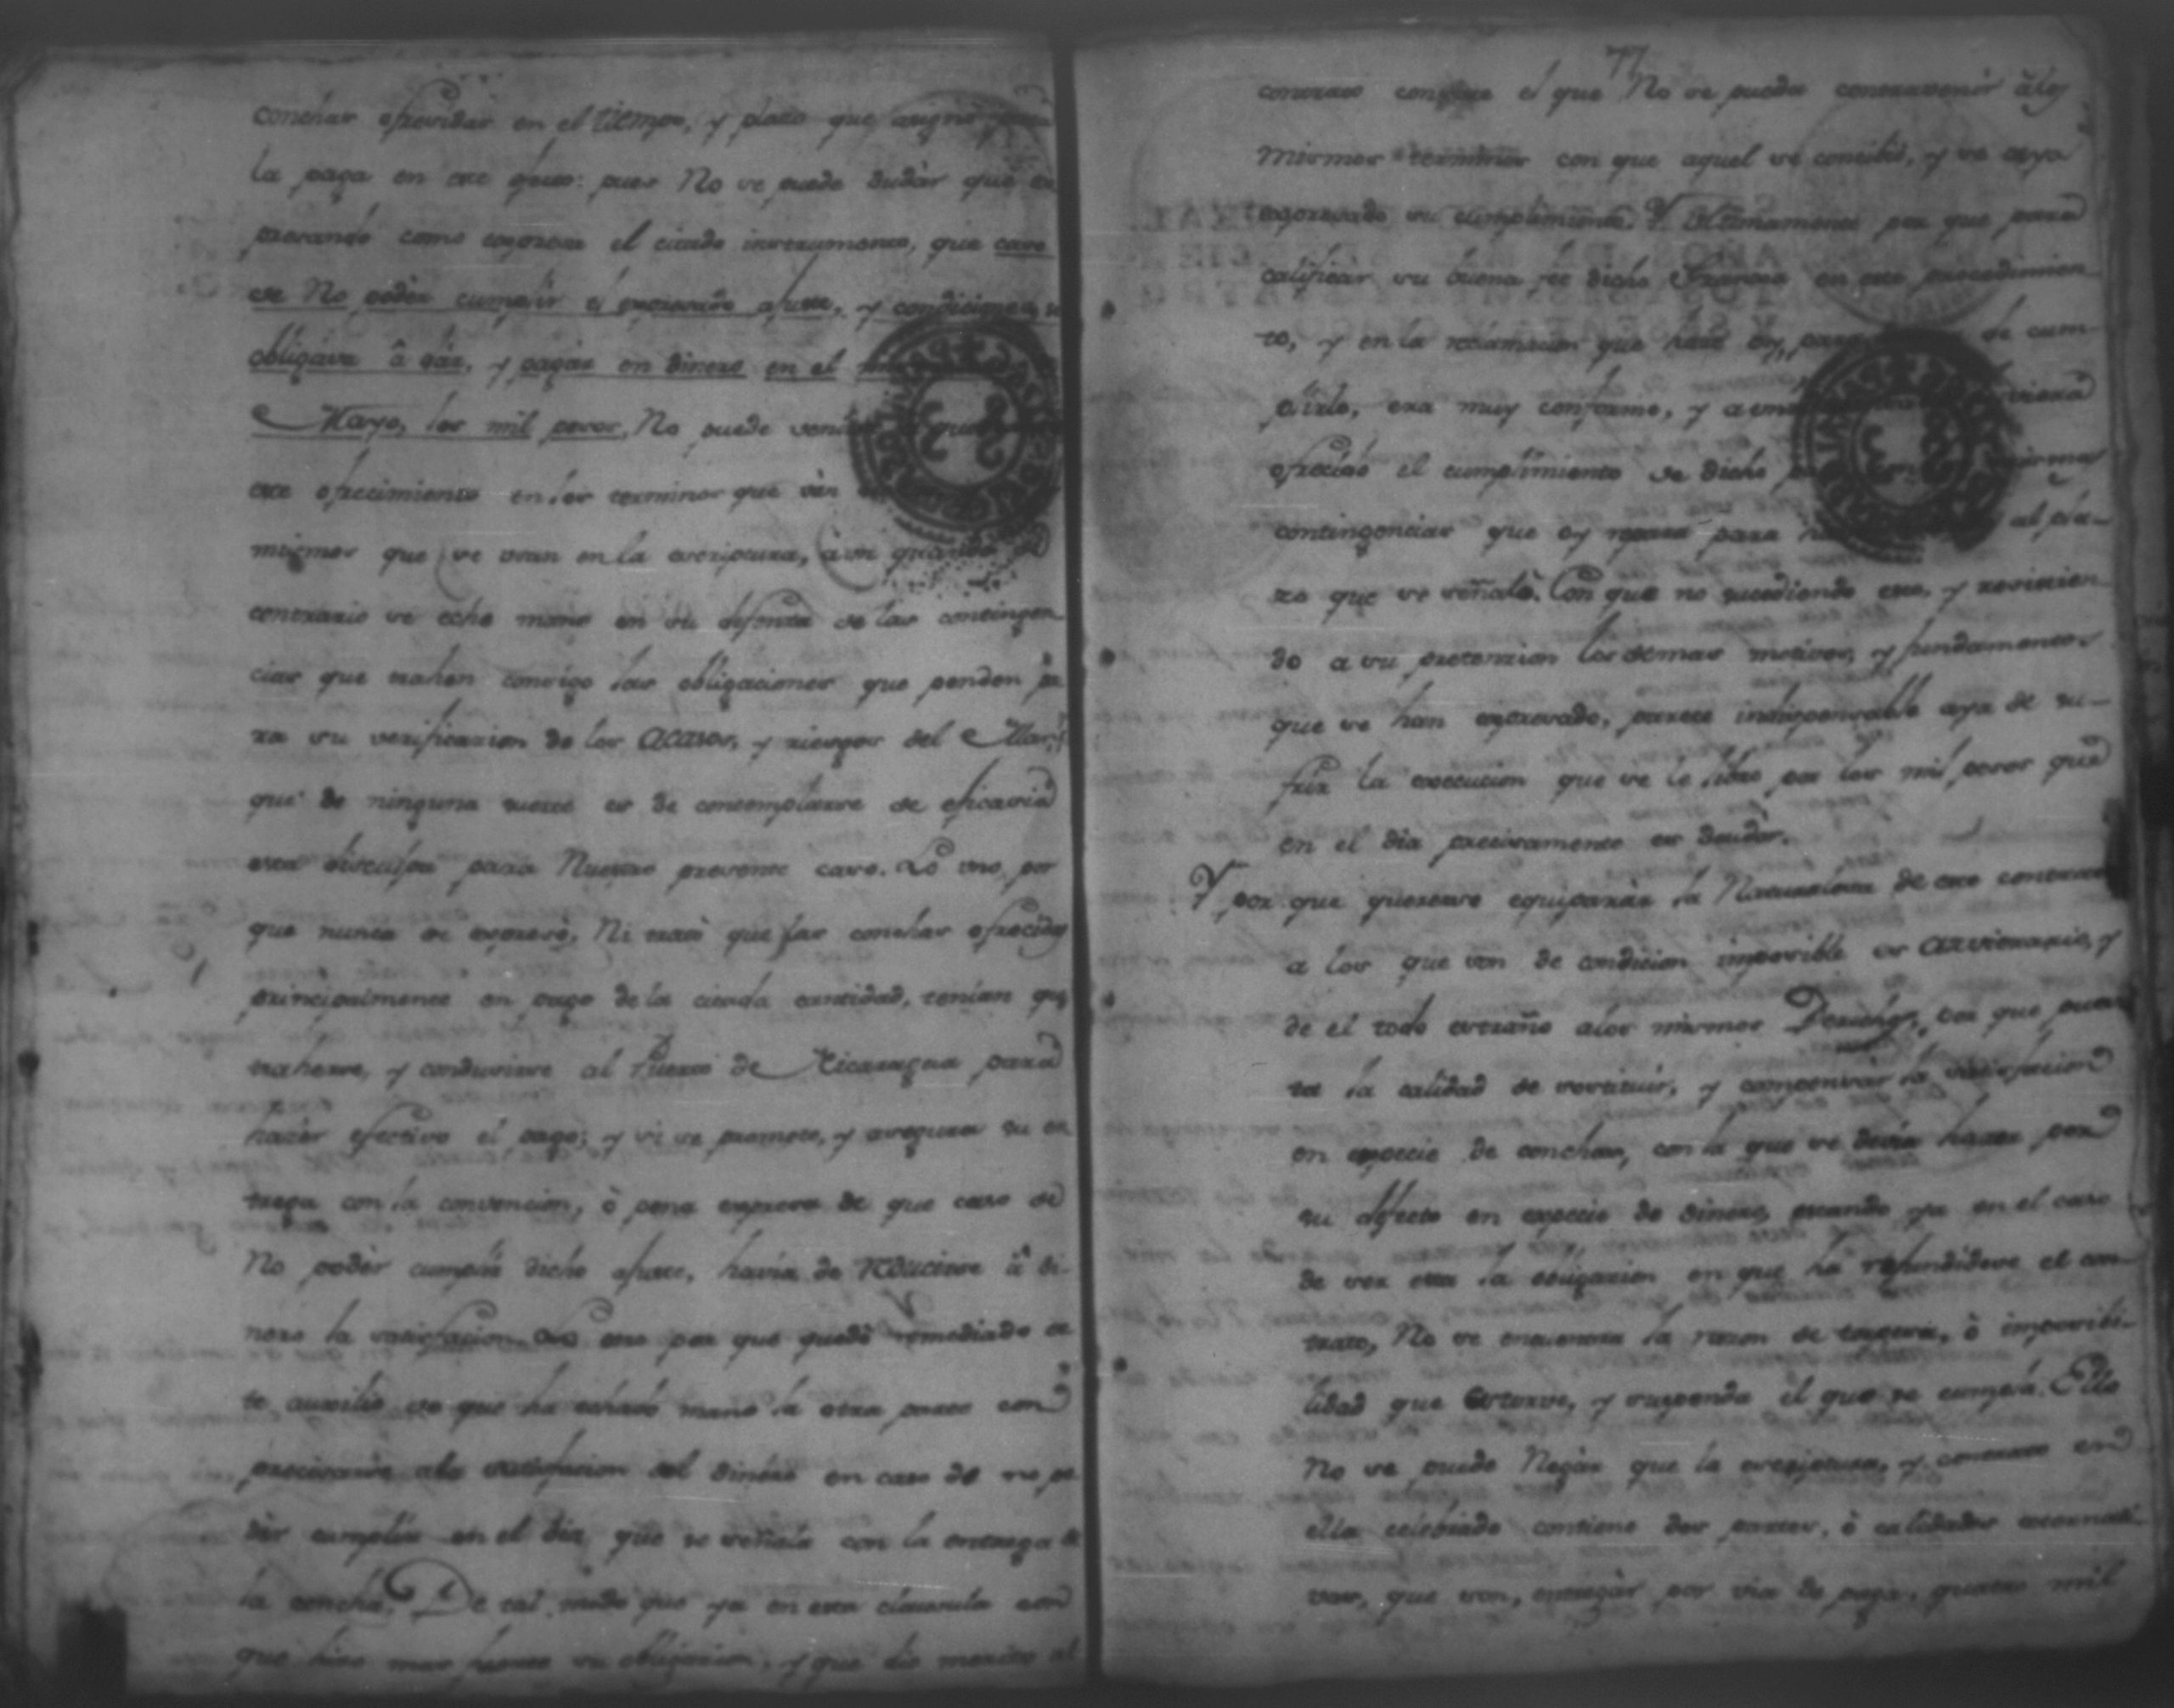 conchas ofrecidas en el tiempo, y plazo que asignó para
la paga en ese genero: pues No se puede dudár que ex
presando como expresa el citado instrumento, que caso
de No podèr cumplir el expresado ajuste, y condiciones, se
obligàva â dàr, y pagàr en dinero en el
Mayo, los mil pesos, No puede venir que
este ofrecimiento en los terminos que vàn
mismos que se vean en la escriptura, para quando
contrario se eche mano en su defensa de las contingen
cias que trahen consigo las obligaciones que penden pa
ra su verificacion de los acasos, y riesgos del Mar,
que de ninguna suerte es de contemplarse de eficacia
esta disculpa para Nuestro presente caso. Lo uno por
que nunca se expresò, Ni tratò que las conchas ofrecidas
principalmente en pago de la citada cantidad, tenian que
traherse, y conducirse al Puerto de Nicaragua para
hacèr efectivo el pago; y si se promete, y asegura su en
trega con la convencion, ò pena expresa de que caso de
No podèr cumplir dicho ajuste, havia de reducirse â di
nero la satisfacion. Otro por que quedó remediado es
te auxilio de que ha echado mano la otra parte con
precisarse a la satisfacion del dinero en caso de no po
dèr cumplir en el dia que se señala con la entrega de
la concha. De tal modo que ya en esta clausula con
que hizo mas fuerte su obligacion, y que dio merito al
77
contrato consiste el que No se pueda contravenir â los
mismos terminos con que aquel se concibió, y se aya
expresado su cumplimiento. Y Ultimamente por que para
calificar su buena fee dicho en este procedimien
to, y en la reclamacion que hace oy, para de cum-
plirlo, era muy conforme, y
ofrecido el cumplimiento de dicho
contingencias que oy para al pla-
zo que se señalò. Con que no sucediendo esto, y resistien
do a su pretencion los demas motivos, y fundamentos
que se han expresado, parece indispensable aya de su-
frir la execucion que se le libre por los mil pesos que
en el dia precisamente es deudòr.
Y por que quererse equiparàr la Naturaleza de este contrato
a los que son de condicion imposible es arvitrario, y
de el todo extraño a los mismos Derechos, por que pues
ta la calidad de restituir, y compensar la satisfacion
en especie de conchas, con la que se devia hacer por
su defecto en especie de dinero, estando ya en el caso
de ser esta la obligacion en que ha refundidose el con-
trato, No se encuentra la razon de ò imposibi-
lidad que estorve, y suspenda el que se cumpla. Ello
No se puede Negàr que la escriptura, y contrato en
ella celebrado contiene dos partes, ò calidades
vas, que son, entregàr por via de paga, quatro mil